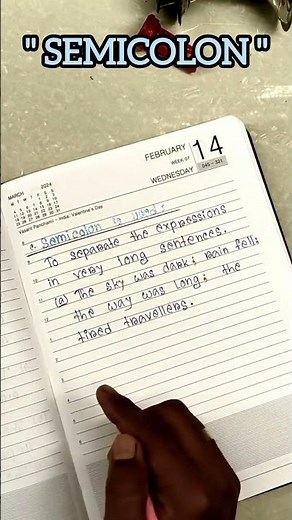 " SEMICOLON "
MARCH 2024
FEBRUARY 14
WEEK 07
WEDNESDAY 045 - 321
Vasant Panchami - India. Valentine's Day
2. Semicolon is used :
To separate the expressions
in very long sentences.
(a) The sky was dark; rain fell;
the way was long; the
tired travellers.